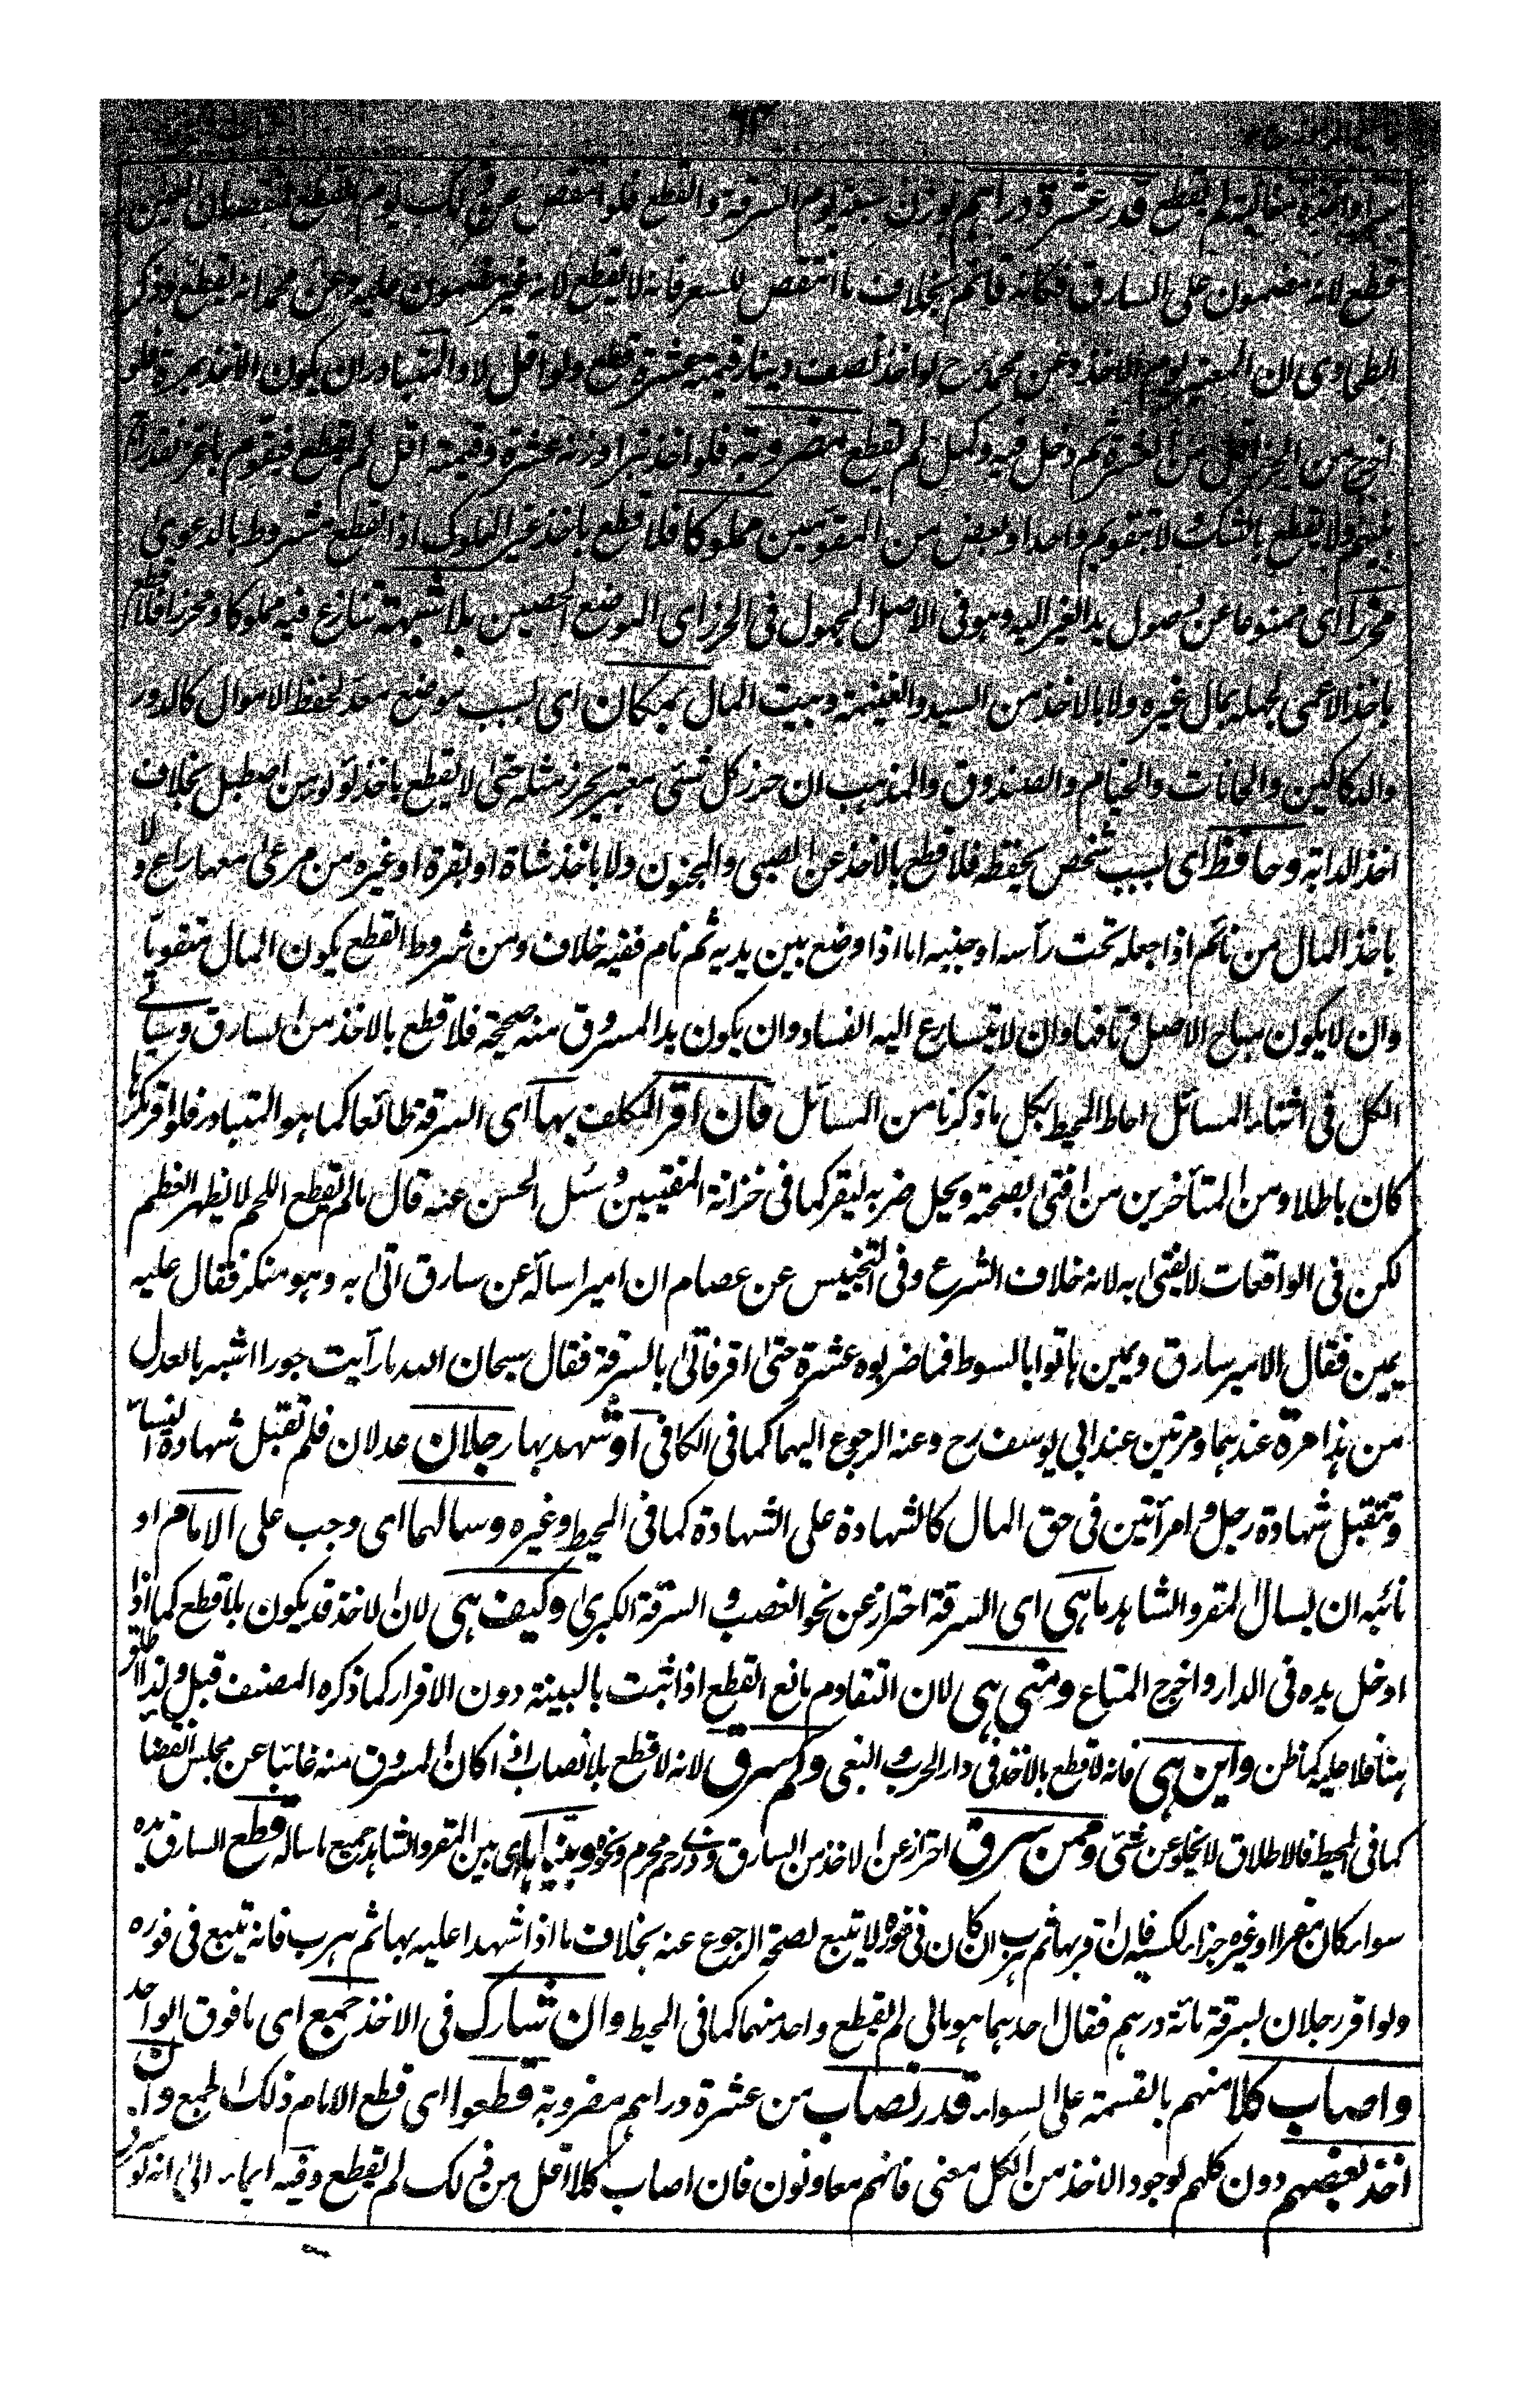 قطع لانه مضمون على السارق فكانه قائم بخلاف ما انتقص للسعر فانه لا يقطع لانه غير مضمون عليه وعن محمد انه يقطع وذكر
الطحاوى ان المعتبر يوم الاخذ وعن محمد رح لو اخذ نصف دينار قيمته عشرة قطع ولو اقل لا والمتبادر ان يكون الاخذ بمرة فلو
اخرج من الحرز اقل من العشرة ثم دخل فيه وكمل لم يقطع مضروبة فلو اخذ تبرا وزنه عشرة وقيمته اقل لم يقطع فيقوم باعز نقد
بينهم ولا يقطع بالشك ولا بتقويم واحد او بعض من المقومين مملوكا فلا قطع باخذ غير المملوك اذ القطع مشروط بالدعوى
محرزا اى ممنوعا عن وصول يد الغير اليه وهو فى الاصل المجعول فى الحرز اى الموضع الحصين بلا شبهة تنازع فيه مملوكا ومحرزا فلا قطع
باخذ الاعمى لجهله بمال غيره ولا بالاخذ من السيد والغنيمة وبيت المال بمكان اى بسبب موضع معد لحفظ الاموال كالدور
والدكاكين والحانات والخيام والصندوق والمذهب ان حرز كل شئى معتبر بحرز مثله حتى لا يقطع باخذ لؤلؤ من اصطبل بخلاف
اخذ الدابة وحافظ اى بسبب شخص يحفظه فلا قطع بالاخذ عن الصبى والمجنون ولا باخذ شاة او بقرة او غيره من مرعى معها راع ولا
باخذ المال من نائم اذا جعله تحت رأسه او جنبه اما اذا وضع بين يديه ثم نام ففيه خلاف ومن شروط القطع يكون المال متقوما
وان لا يكون مباح الاصل تافها وان لا يتسارع اليه الفساد وان يكون يد المسروق منه صحيحة فلا قطع بالاخذ من السارق وسياتى
الكل فى اثناء المسائل احاط المحيط بكل ما ذكرنا من المسائل فان اقر المكلف بها اى السرقة طائعا كما هو المتبادر فلو اقر مكرها
كان باطلا ومن المتأخرين من افتى بصحته ويحل ضربه ليقر كما فى خزانة المفتيين وسئل الحسن عنه قال ما لم يقطع اللحم لا يظهر العظم
لكن فى الواقعات لا يفتى به لانه خلاف الشرع وفى التجنيس عن عصام ان اميرا سأله عن سارق اتى به وهو منكر فقال عليه
يمين فقال الامير سارق ويمين هاتوا بالسوط فما ضربوه عشرة حتى اقر فاتى بالسرقة فقال سبحان الله ما رأيت جورا اشبه بالعدل
من هذا مرة عندهما ومرتين عند ابى يوسف رح وعنه الرجوع اليهما كما فى الكافى او شهد بها رجلان عدلان فلم تقبل شهادة النساء
وتقبل شهادة رجل وامرأتين فى حق المال كالشهادة على الشهادة كما فى المحيط وغيره وسالهما اى وجب على الامام او
نائبه ان يسال المقر والشاهد ماهى اى السرقة احتراز عن نحو الغصب والسرقة الكبرى وكيف هى لان الاخذ قد يكون بلا قطع كما اذا
ادخل يده فى الدار واخرج المتاع ومتى هى لان التقادم مانع القطع اذا ثبت بالبينة دون الاقرار كما ذكره المصنف قبل ولذا اطلق
هنا فلا عليه كما ظن واين هى فانه لا قطع بالاخذ فى دار الحرب والبغى وكم سرق لانه لا قطع بلا نصاب واذا كان المسروق منه غائبا عن مجلس القضا
كما فى المحيط فالاطلاق لا يخلو عن شئى وممن سرق احتراز عن الاخذ من السارق وذى رحم محرم ونحوه وبينا ها اى بين المقر والشاهد جميع ما ساله قطع السارق يده
سواء كان مقرا او غيره جزاء لكسبه فان اقر بها ثم هرب ان كان فى فوره لا يتبع لصحة الرجوع عنه بخلاف ما اذا شهدا عليه بها ثم هرب فانه يتبع فى فوره
ولو اقر رجلان بسرقة مائة درهم فقال احدهما هو مالى لم يقطع واحد منهما كما فى المحيط وان تشارك فى الاخذ جميع اى ما فوق الواحد
واصاب كلا منهم بالقسمة على السواء قدر نصاب من عشرة دراهم مضروبة قطعوا اى قطع الامام ذلك الجمع وان
اخذ بعضهم دون كلهم لوجود الاخذ من الكل معنى فانهم معاونون فان اصاب كلا اقل من ذلك لم يقطع وفيه ايماء الى انه لو